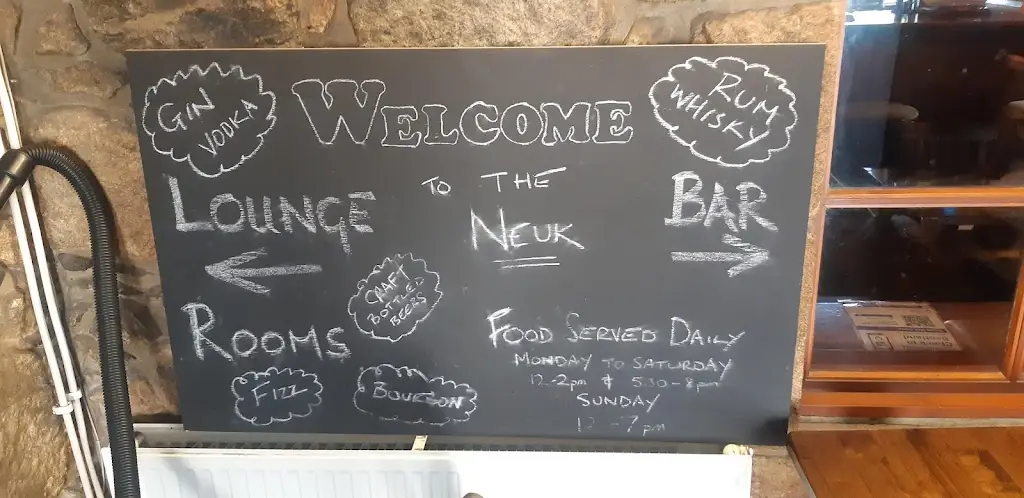 GIN
VODKA
WELCOME
RUM
WHISKY
TO THE
NEUK
LOUNGE
BAR
CRAFT
BOTTLED
BEERS
ROOMS
FIZZ
BOURBON
FOOD SERVED DAILY
MONDAY TO SATURDAY
12-2pm & 5.30-8pm
SUNDAY
12-7pm
Check in
Scotland